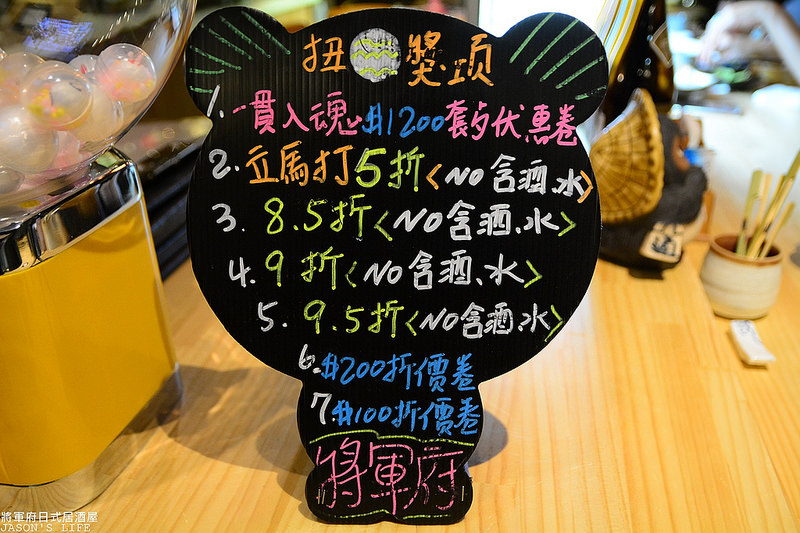 扭獎项
1.一貫入魂$1200套夕优惠卷
2.立馬打5折<NO含酒.水>
3.8.5折<NO含酒.水>
4.9折<NO含酒.水>
5.9.5折<NO含酒.水>
6.$200折價卷
7.$100折價卷
將軍府
將軍府日式居酒屋
JASON'S LIFE